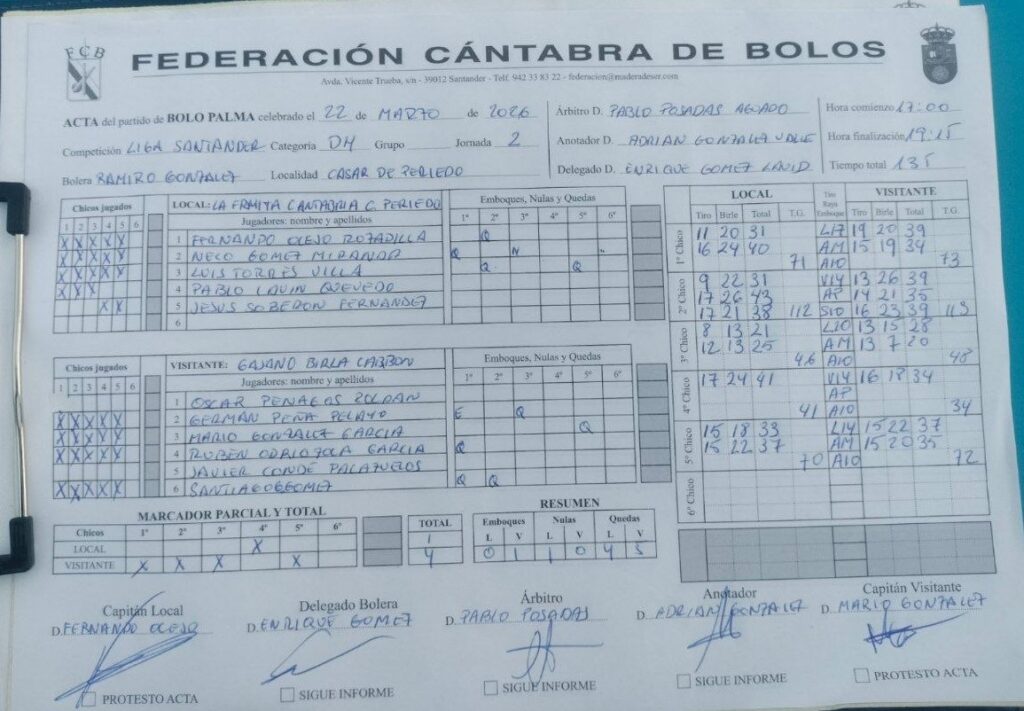 FCB
FEDERACIÓN CÁNTABRA DE BOLOS
Avda. Vicente Trueba, s/n - 39012 Santander - Telf. 942 33 83 22 - federacion@maderadeser.com
ACTA del partido de BOLO PALMA celebrado el 22 de MARZO de 2026
Competición LIGA SANTANDER Categoría DH Grupo Jornada 2
Bolera RAMIRO GONZALEZ Localidad CASAR DE PERIEDO
Árbitro D. PABLO POSADAS AGUADO
Anotador D. ADRIAN GONZALEZ VALLE
Delegado D. ENRIQUE GOMEZ
Hora comienzo 17:00
Hora finalización 19:15
Tiempo total 135
Chicos jugados
1 2 3 4 5 6
X X X X X
X X X X X
X X X X X
X X X
X X
LOCAL: LA ERMITA CANTABRIA C. PERIEDO
Jugadores: nombre y apellidos
Emboques, Nulas y Quedas
1º 2º 3º 4º 5º 6º
1 FERNANDO OLEJO ROZADILLA Q
2 NECO GOMEZ MIRANDA Q N
3 LUIS TORRES VILLA Q Q
4 PABLO LAVIN QUEVEDO
5 JESUS SOBERON FERNANDEZ
6
Chicos jugados
1 2 3 4 5 6
X X X X X
X X X X X
X X X X X
X X X X X
VISITANTE: GAJANO BIRLA CARBON
Jugadores: nombre y apellidos
Emboques, Nulas y Quedas
1º 2º 3º 4º 5º 6º
1 OSCAR PENAGOS ROLDAN
2 GERMAN PEÑA PELAYO E Q
3 MARIO GONZALEZ GARCIA Q
4 RUBEN ODRIOZOLA GARCIA Q
5 JAVIER CONDE PALAZUELOS
6 SANTIAGO GOMEZ Q Q
LOCAL VISITANTE
Tiro Birle Total T.G. Tiro Raya Emboque Tiro Birle Total T.G.
1º Chico
11 20 31 L17 19 20 39
16 24 40 AM 15 19 34
71 A10 73
2º Chico
9 22 31 V14 13 26 39
17 26 43 AP 14 21 35
17 21 38 112 S10 16 23 39 113
3º Chico
8 13 21 L10 13 15 28
12 13 25 AM 13 7 20
46 A10 48
4º Chico
17 24 41 V14 16 18 34
AP
41 A10 34
5º Chico
15 18 33 L14 15 22 37
15 22 37 AM 15 20 35
70 A10 72
6º Chico
MARCADOR PARCIAL Y TOTAL
Chicos 1º 2º 3º 4º 5º 6º TOTAL
LOCAL X 1
VISITANTE X X X X 4
RESUMEN
Emboques Nulas Quedas
L V L V L V
0 1 1 0 4 5
Capitán Local
D. FERNANDO OLEJO
PROTESTO ACTA
Delegado Bolera
D. ENRIQUE GOMEZ
SIGUE INFORME
Árbitro
D. PABLO POSADAS
SIGUE INFORME
Anotador
D. ADRIAN GONZALEZ
SIGUE INFORME
Capitán Visitante
D. MARIO GONZALEZ
PROTESTO ACTA